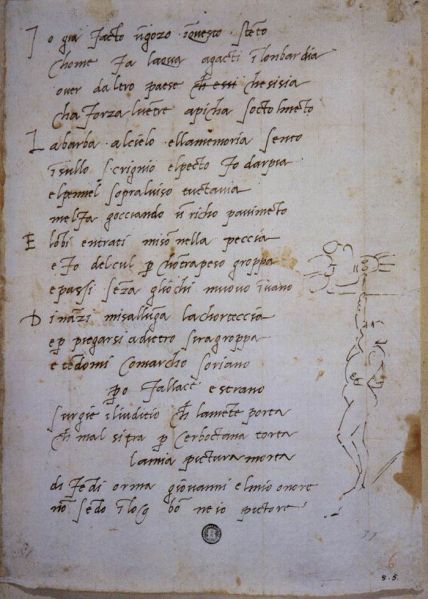 I o gia facto ũgozo ĩquesto stẽto
chome fa lacqua agacti ĩlonbardia
over daltro paese ch essi chesisia
cha forza luẽtre apicha socto lmẽto
L abarba alcielo ellamemoria sento
ĩsullo scrignio elpecto fo darpia
elpennel sopraluiso tuctauia
melfa gocciando ũ richo pauimẽto
E lõbi entrati miso nella peccia
e fo delcul p chõtrapeso groppa
e passi seza gliochi muouo ĩuano
D inãzi misalluga lachorteccia
e p piegarsi adietro siragroppa
e tẽdomi comarcho soriano
po fallace e strano
surgie iliuditio ch lamẽte porta
ch mal sitra p cerboctana torta
lamia pictura morta
difedi orma giouanni elmio onore
nõ sẽdo ĩlog bõ ne io pictore
6